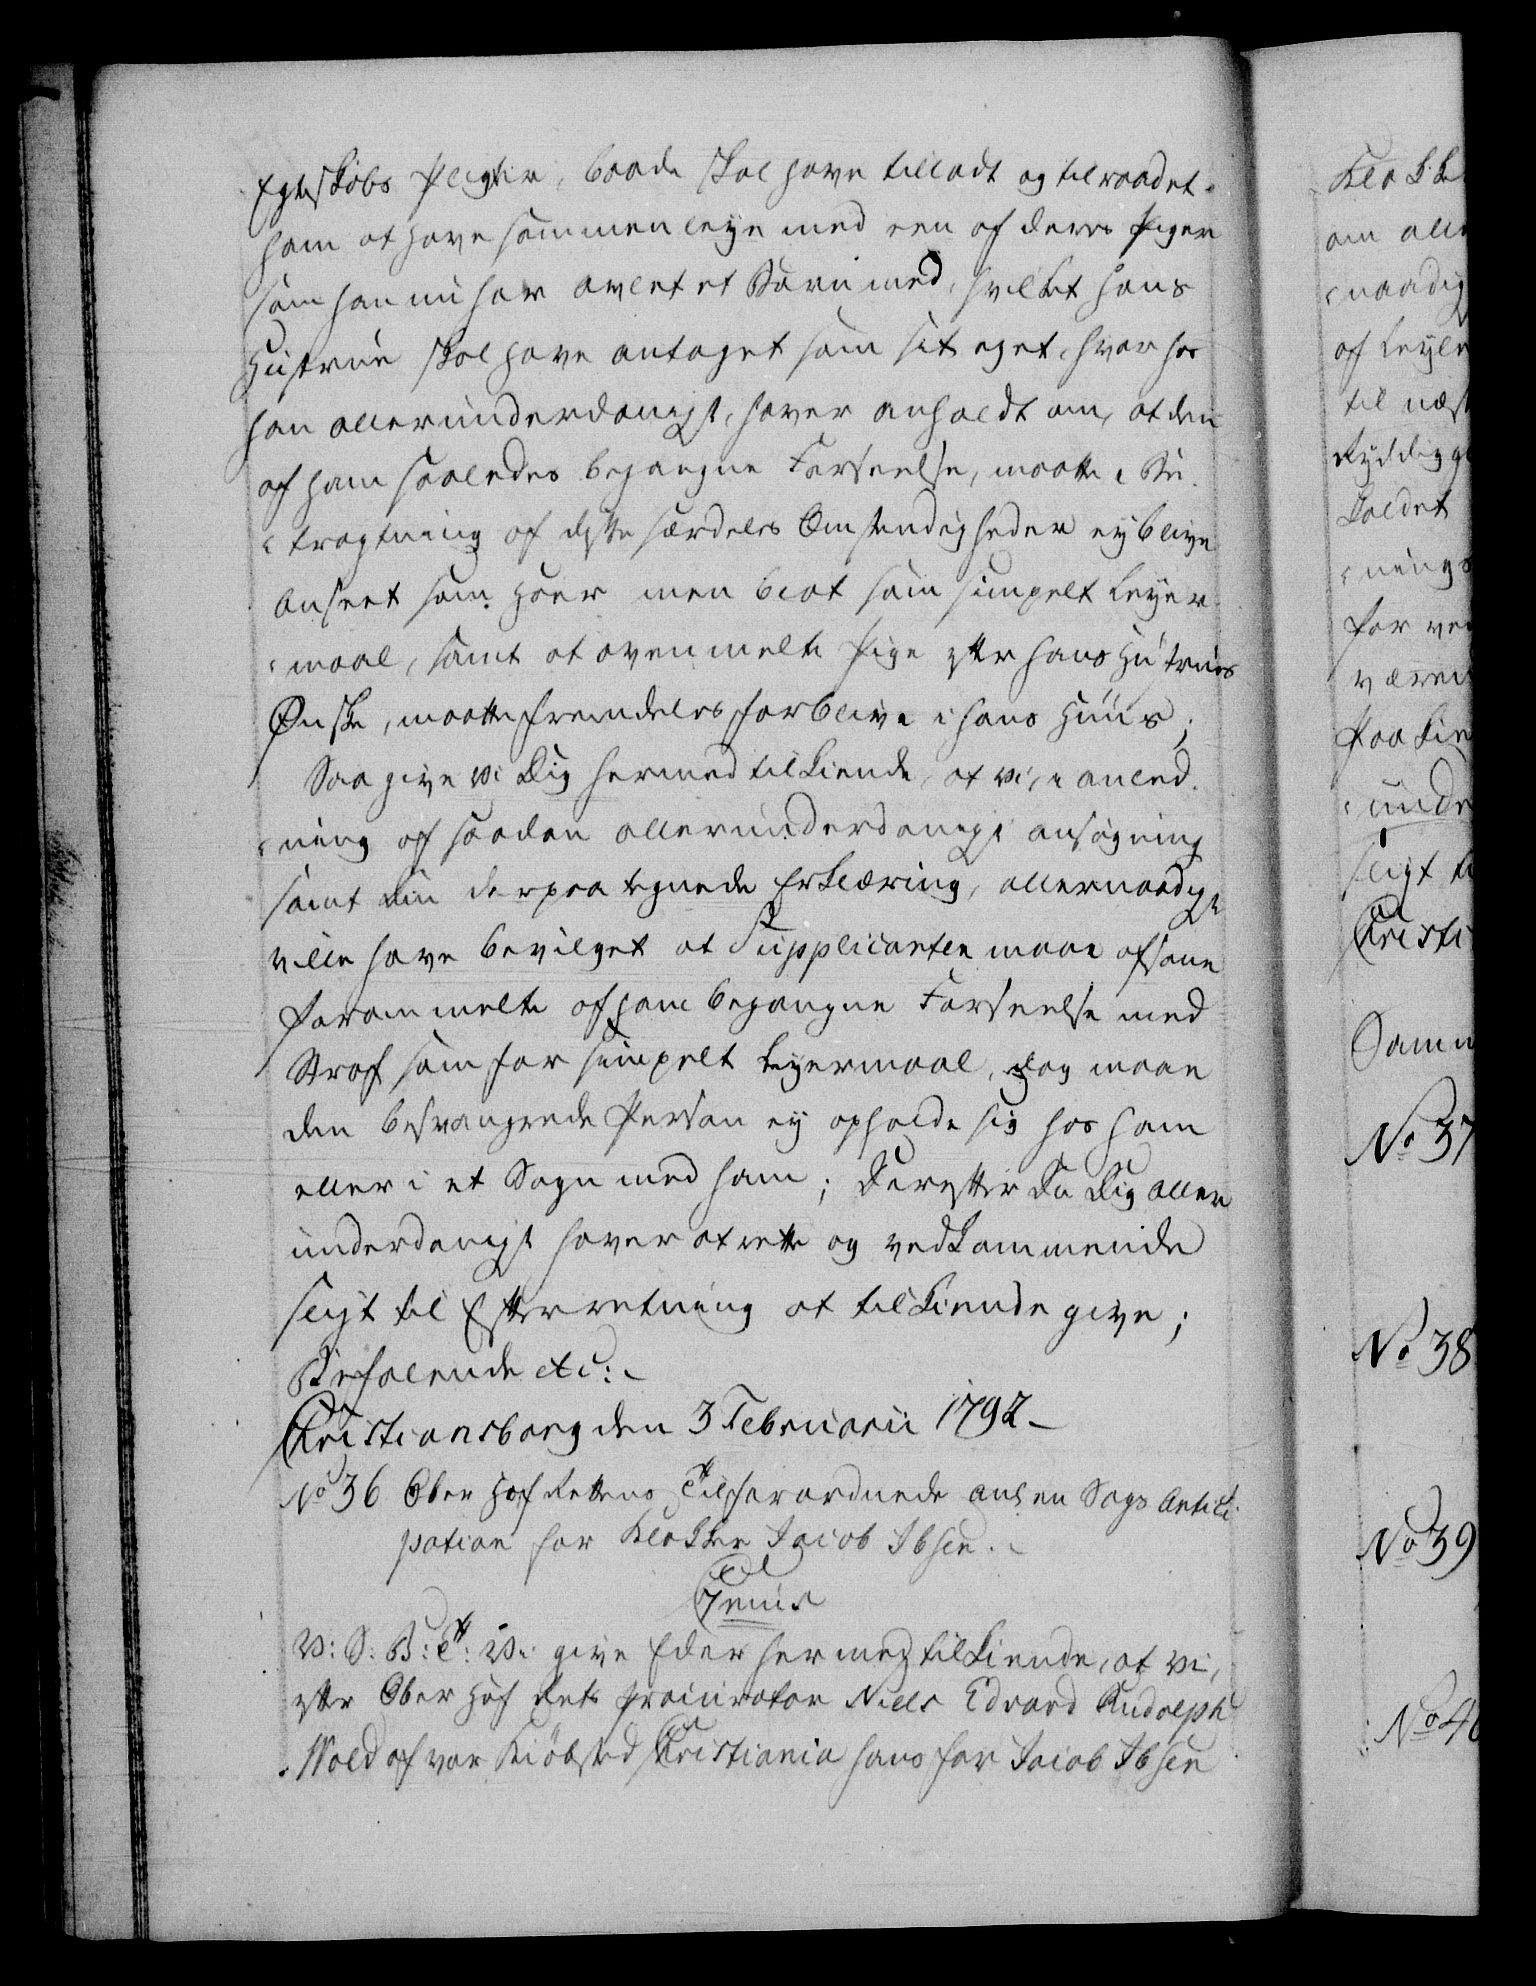 Egteskabs Pligter, baade skal have tilladt og tilraadet
ham at have sammenleye med een af deres Piger
som han nu har avlet et Barn med, hvilket hans
Hustrue skal have antaget som sit eget, hvorhos
han allerunderdanigst haver anholdt om, at den
af ham saaledes begangne Forseelse, maatte i Be-
tragtning af disse særdeles Omstændigheder ey blive
anseet som Hoer men blot som simpelt Leyer-
maal, samt at ovenmelte Pige efter hans Hustrues
Ønske, maatte fremdeles forblive i hans Huus;
Saa give vi Dig hermed tilkiende, at vi, i anled-
ning af saadan allerunderdanigst ansøgning
samt din derpaa tegnede Erklæring, allernaadigst
ville have bevilget at Supplicanten maae afsone
forommelte af ham begangne Forseelse med
Straf som for simpelt Leyermaal, dog maae
den besvangrede Person ey opholde sig hos ham
eller i et Sogn med ham; Derefter Du Dig aller
underdanigst haver at rette og vedkommende
sligt til Efterretning at tilkiende give;
Befalende etc:
Christiansborg den 3 Februarii 1792
No 36 Ober Hof Rettens Tilforordnede anl en Sags Antici-
pation for Klokker Jacob Ibsen.
C7mus
V: S: B: Et: Vi give Eder hermed tilkiende, at vi,
efter Ober Hof Rets Procurator Niels Edvard Rudolph
Wold af vor Kiøbsted Christiania hans for Jacob Ibsen
Klokke
om alle
naadig
af Leyle
til næst
Ryddigg
Kaldet
nings
for ve
væren
Paa Kie
unde
sligt ti
Christi
Samm
No 37
No 38
No 39
No 40